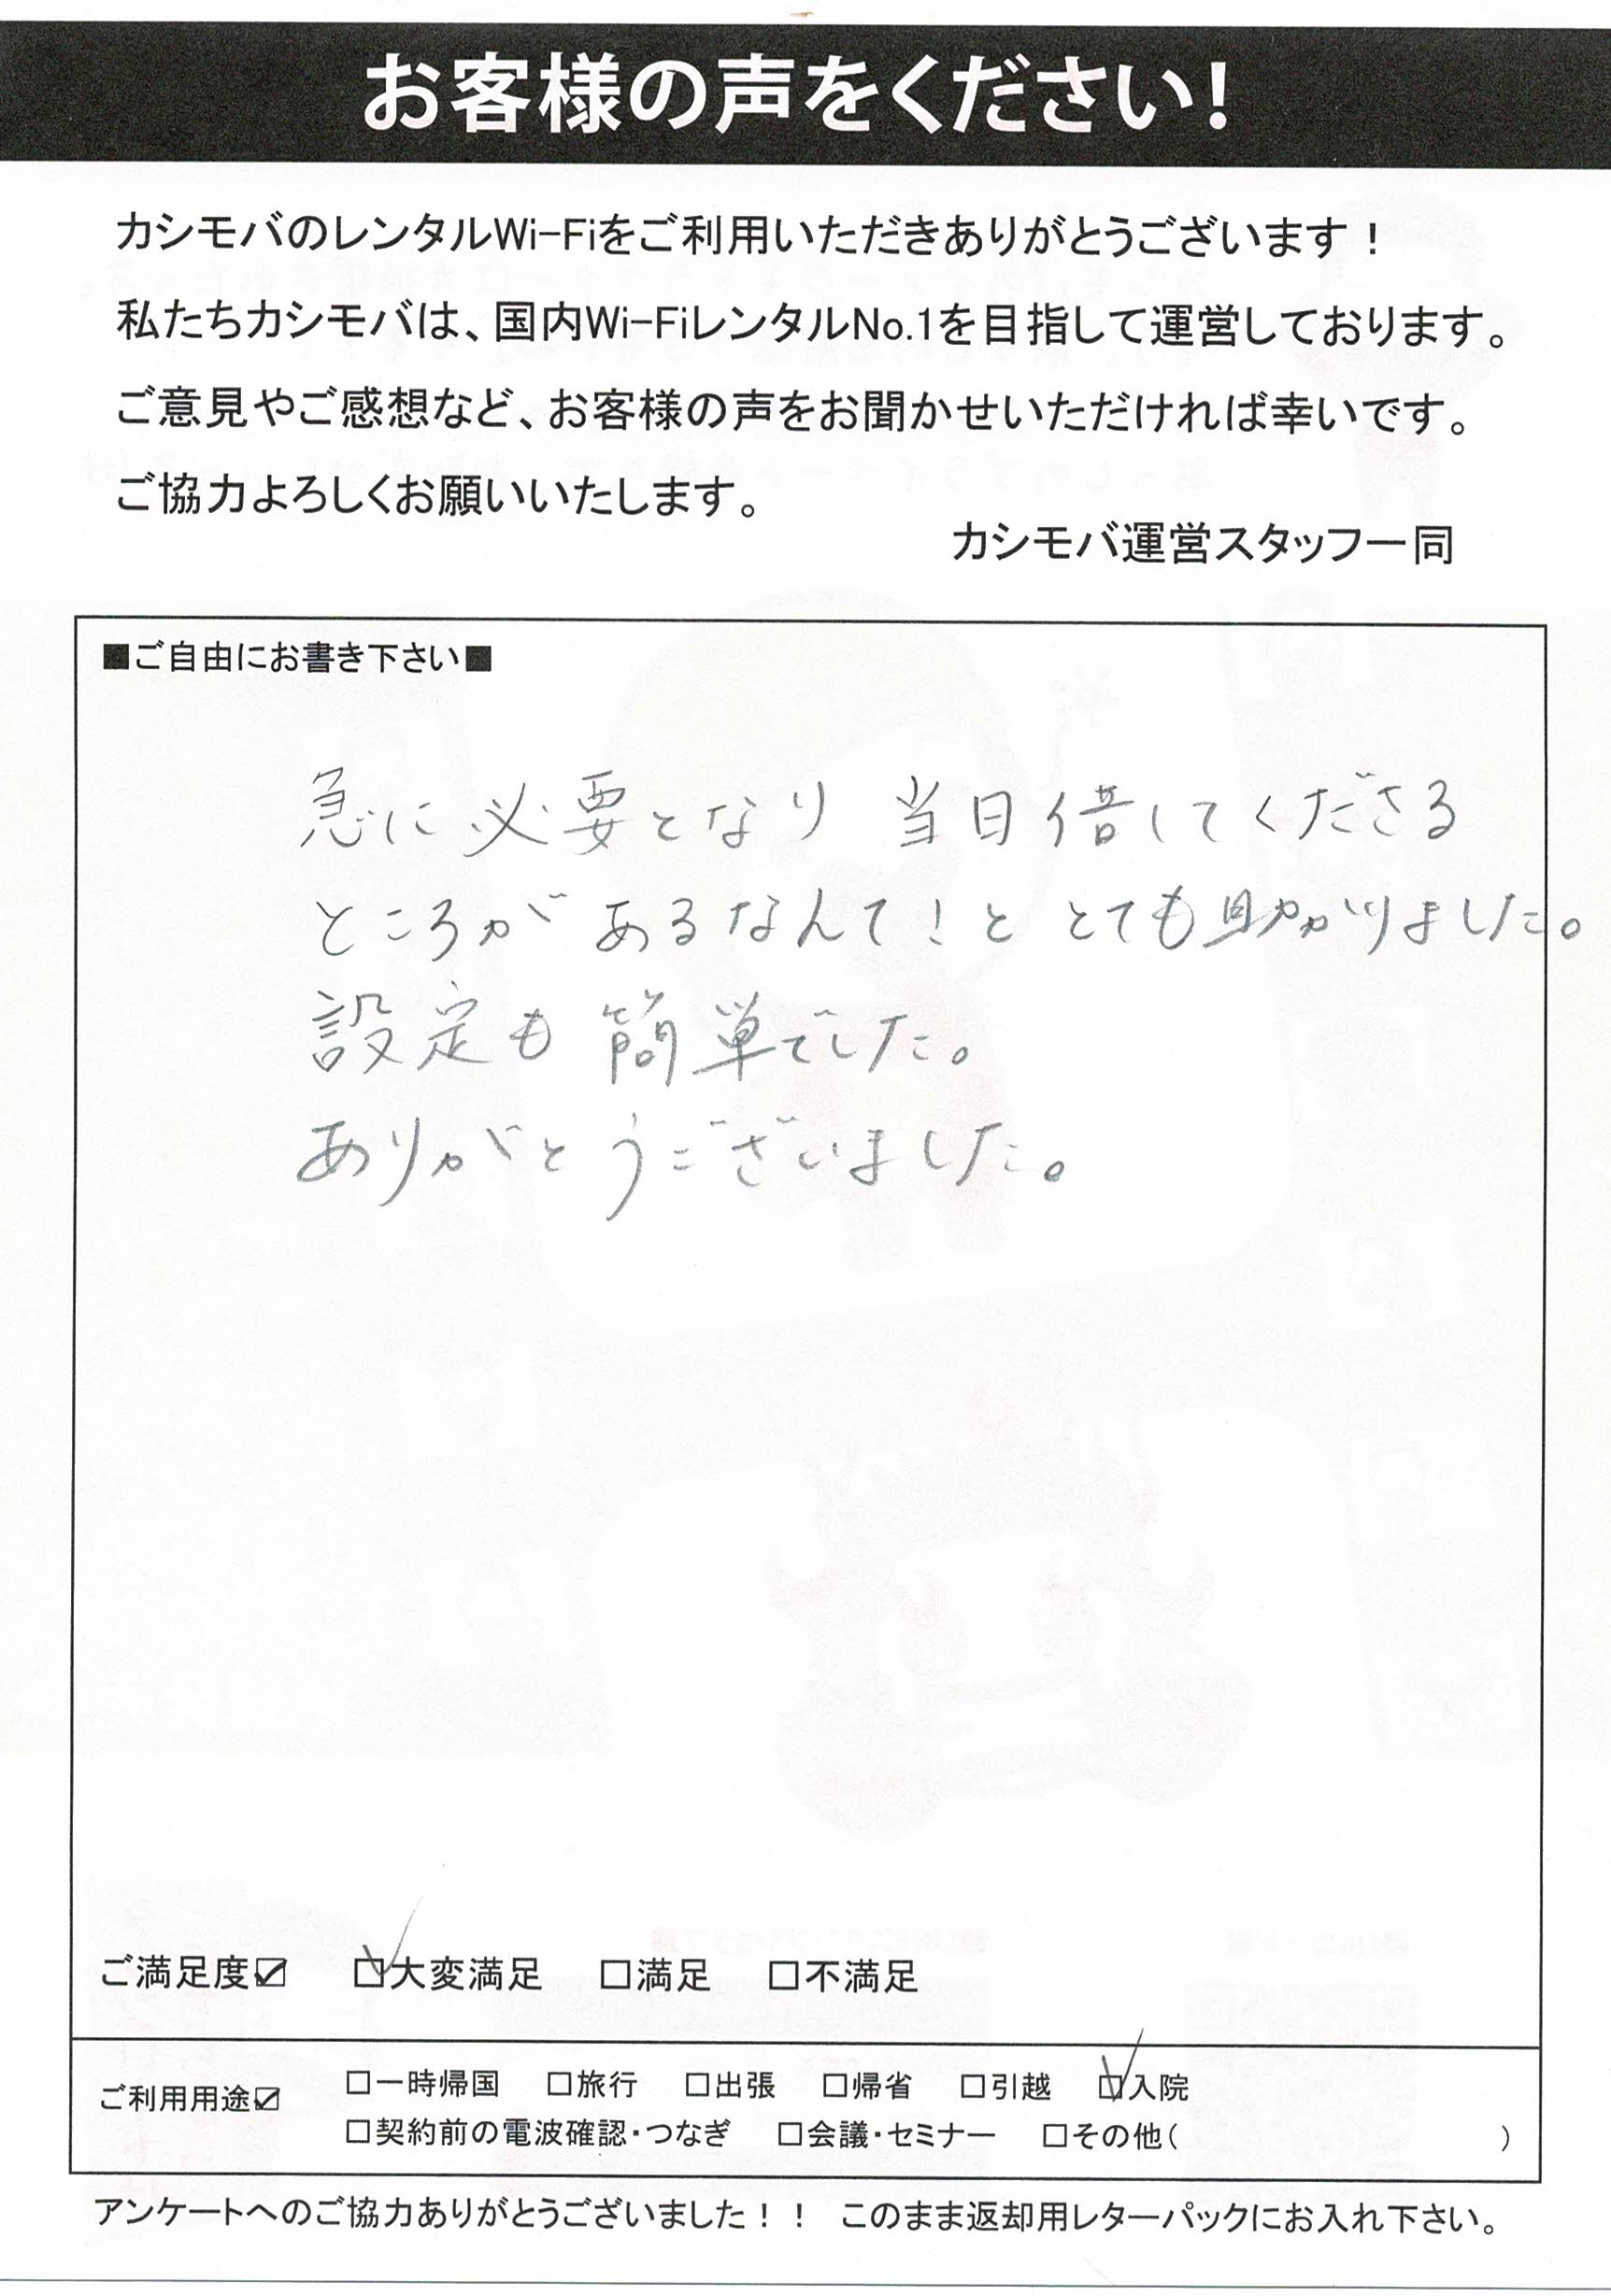 お客様の声をください!
カシモバのレンタルWi-Fiをご利用いただきありがとうございます！
私たちカシモバは、国内Wi-FiレンタルNo.1を目指して運営しております。
ご意見やご感想など、お客様の声をお聞かせいただければ幸いです。
ご協力よろしくお願いいたします。
カシモバ運営スタッフ一同
■ご自由にお書き下さい■
急に必要となり 当日借してくださる
ところが あるなんて！と とても助かりました。
設定も 簡単でした。
ありがとうございました。
ご満足度☑ ☑大変満足 □満足 □不満足
ご利用用途☑ □一時帰国 □旅行 □出張 □帰省 □引越 ☑入院
□契約前の電波確認・つなぎ □会議・セミナー □その他( )
アンケートへのご協力ありがとうございました！！ このまま返却用レターパックにお入れ下さい。